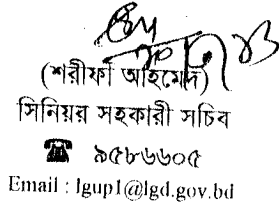 (শরীফা আহমেদ)
সিনিয়র সহকারী সচিব
☎ ৯৫৮৬৬০৫
Email : lgup1@lgd.gov.bd